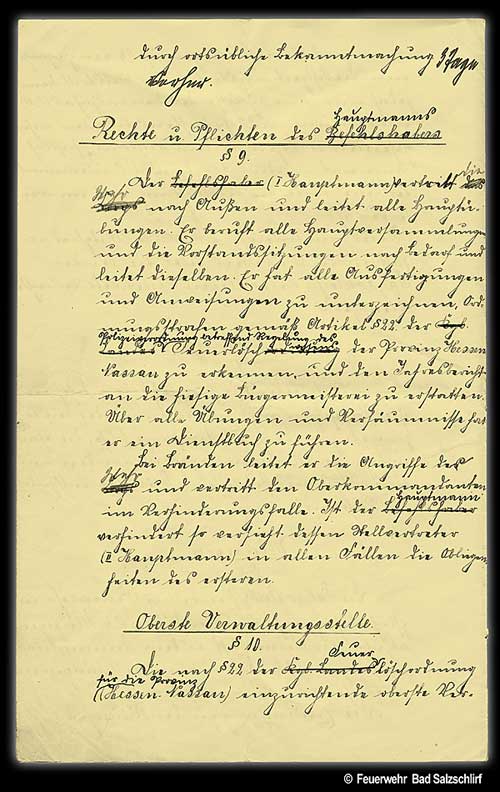 durch ortsübliche Bekanntmachung 3 Tage
vorher.
Hauptmanns
Rechte u. Pflichten des Befehlshabers
§ 9.
Der Befehlshaber (I Hauptmann) vertritt die das
Wehr
Korps nach Außen und leitet alle Hauptü-
bungen. Er beruft alle Hauptversammlungen
und die Vorstandssitzungen nach Bedarf und
leitet dieselben. Er hat alle Ausfertigungen
und Anweisungen zu unterzeichnen, Ord-
nungsstrafen gemäß Artikel § 22 der Kgl.
Polizeiverordnung betreffend Regelung des
Landes Feuerlösch ordnung der Provinz Hessen
Nassau zu erkennen, und den Jahresbericht
an die hiesige Bürgermeisterei zu erstatten.
Über alle Übungen und Versäumnisse hat
er ein Dienstbuch zu führen.
Bei Bränden leitet er die Angriffe der
Wehr
und vertritt den Oberkommandanten
Hauptmann
im Verhinderungsfalle. Ist der Befehlshaber
verhindert so versieht dessen Stellvertreter
(II Hauptmann) in allen Fällen die Obliegen-
heiten des ersteren.
Oberste Verwaltungsstelle.
§ 10.
Feuer
Die nach § 22 der Kgl. Landeslöschordnung
für die Provinz
(Hessen-Nassau) einzurichtende oberste Ver-
© Feuerwehr Bad Salzschlirf